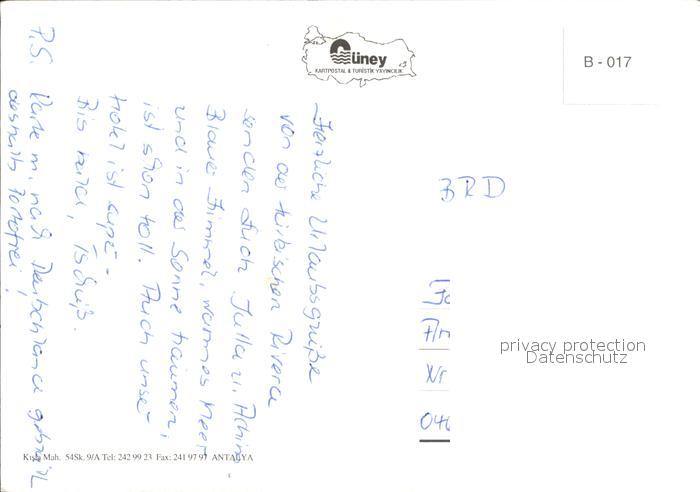 Herzliche Urlaubsgrüße
von der türkischen Riviera
senden Euch Julla u. Achim
Blauer Himmel, warmes Meer
und in der Sonne träumen,
ist schon toll. Auch unser
Hotel ist super.
Bis bald, Tschüß.
P.S. Karte m. nach Deutschland
deshalb Portofrei!
Güney
KARTPOSTAL & TURİSTİK YAYINCILIK
B - 017
BRD
privacy protection
Datenschutz
Kışla Mah. 54Sk. 9/A Tel: 242 99 23 Fax: 241 97 97 ANTALYA